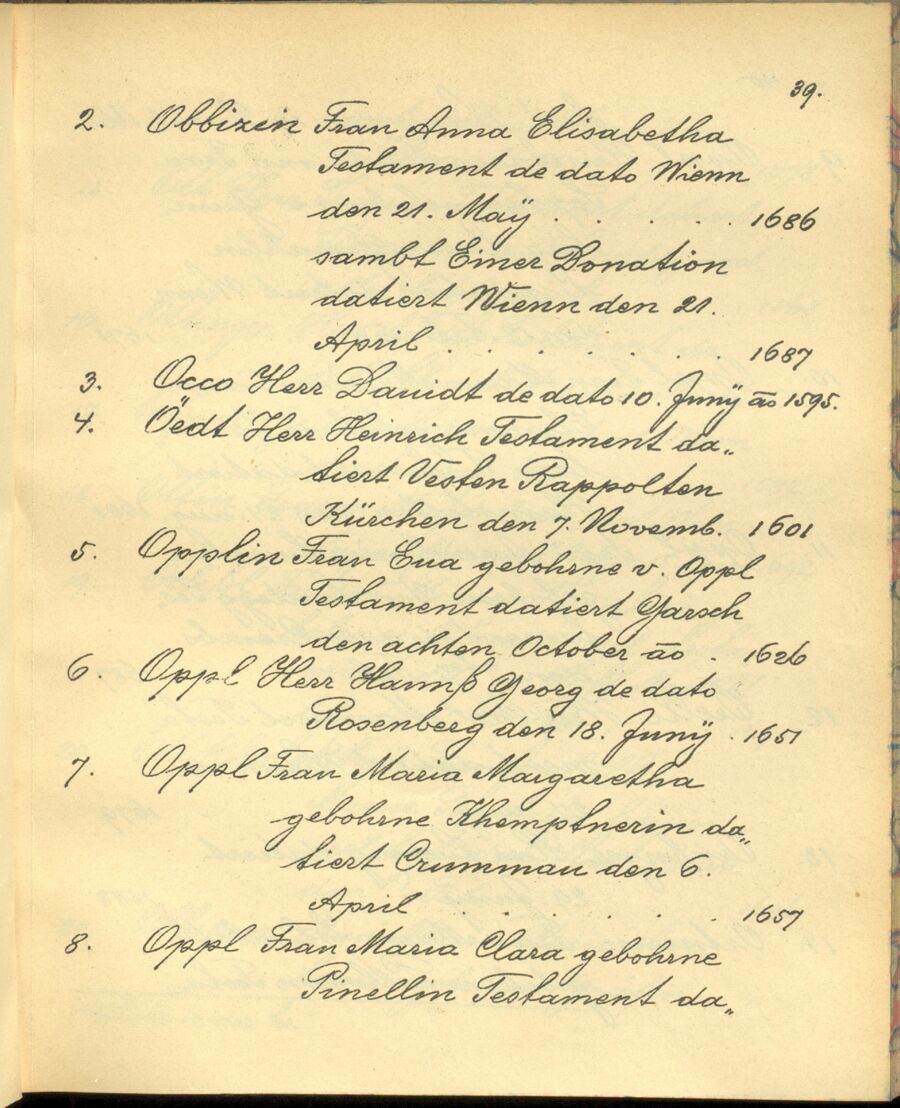 39.
2. Obbizin Frau Anna Elisabetha
Testament de dato Wienn
den 21. Maÿ . . . . . . 1686
sambt Einer Donation
datiert Wienn den 21.
April . . . . . . . 1687
3. Occo Herr Dauidt de dato 10. Junÿ āo 1595.
4. Öedt Herr Heinrich Testament da„
tiert Vesten Rappolten
Kürchen den 7. Novemb. 1601
5. Opplin Frau Eua gebohrne v. Oppl
Testament datiert Garsch
den achten October āo . 1626
6. Oppl Herr Hannß Georg de dato
Rosenberg den 18. Junÿ . 1651
7. Oppl Frau Maria Margaretha
gebohrne Khemptnerin da„
tiert Crummau den 6.
April . . . . . . 1657
8. Oppl Frau Maria Clara gebohrne
Pinellin Testament da„